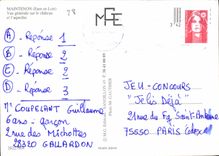 MAINTENON (Eure-et-Loir)
Vue générale sur le château
et l'aqueduc
28
MPE
A - Réponse 1
B - Réponse 2
C - Réponse 2
D - Réponse 3
Mr COUPELANT Guillaume
6 ans - garçon
2 rue des Michottes
28320 GALLARDON
JEU-CONCOURS
"Jélis Déjà"
rue du Fg Saint-Antoine
75550 PARIS Cedex 11